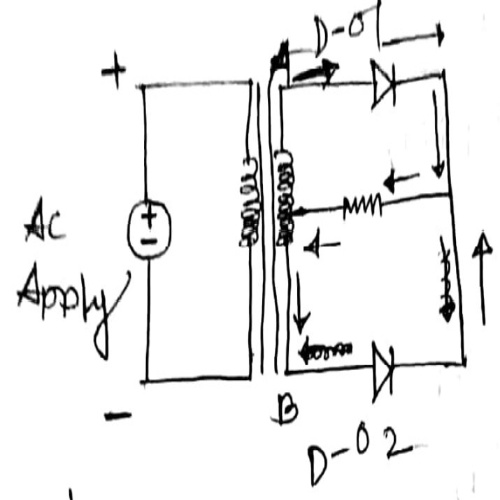 D-01
+
A
+
-
AC
Apply
-
B
D-02